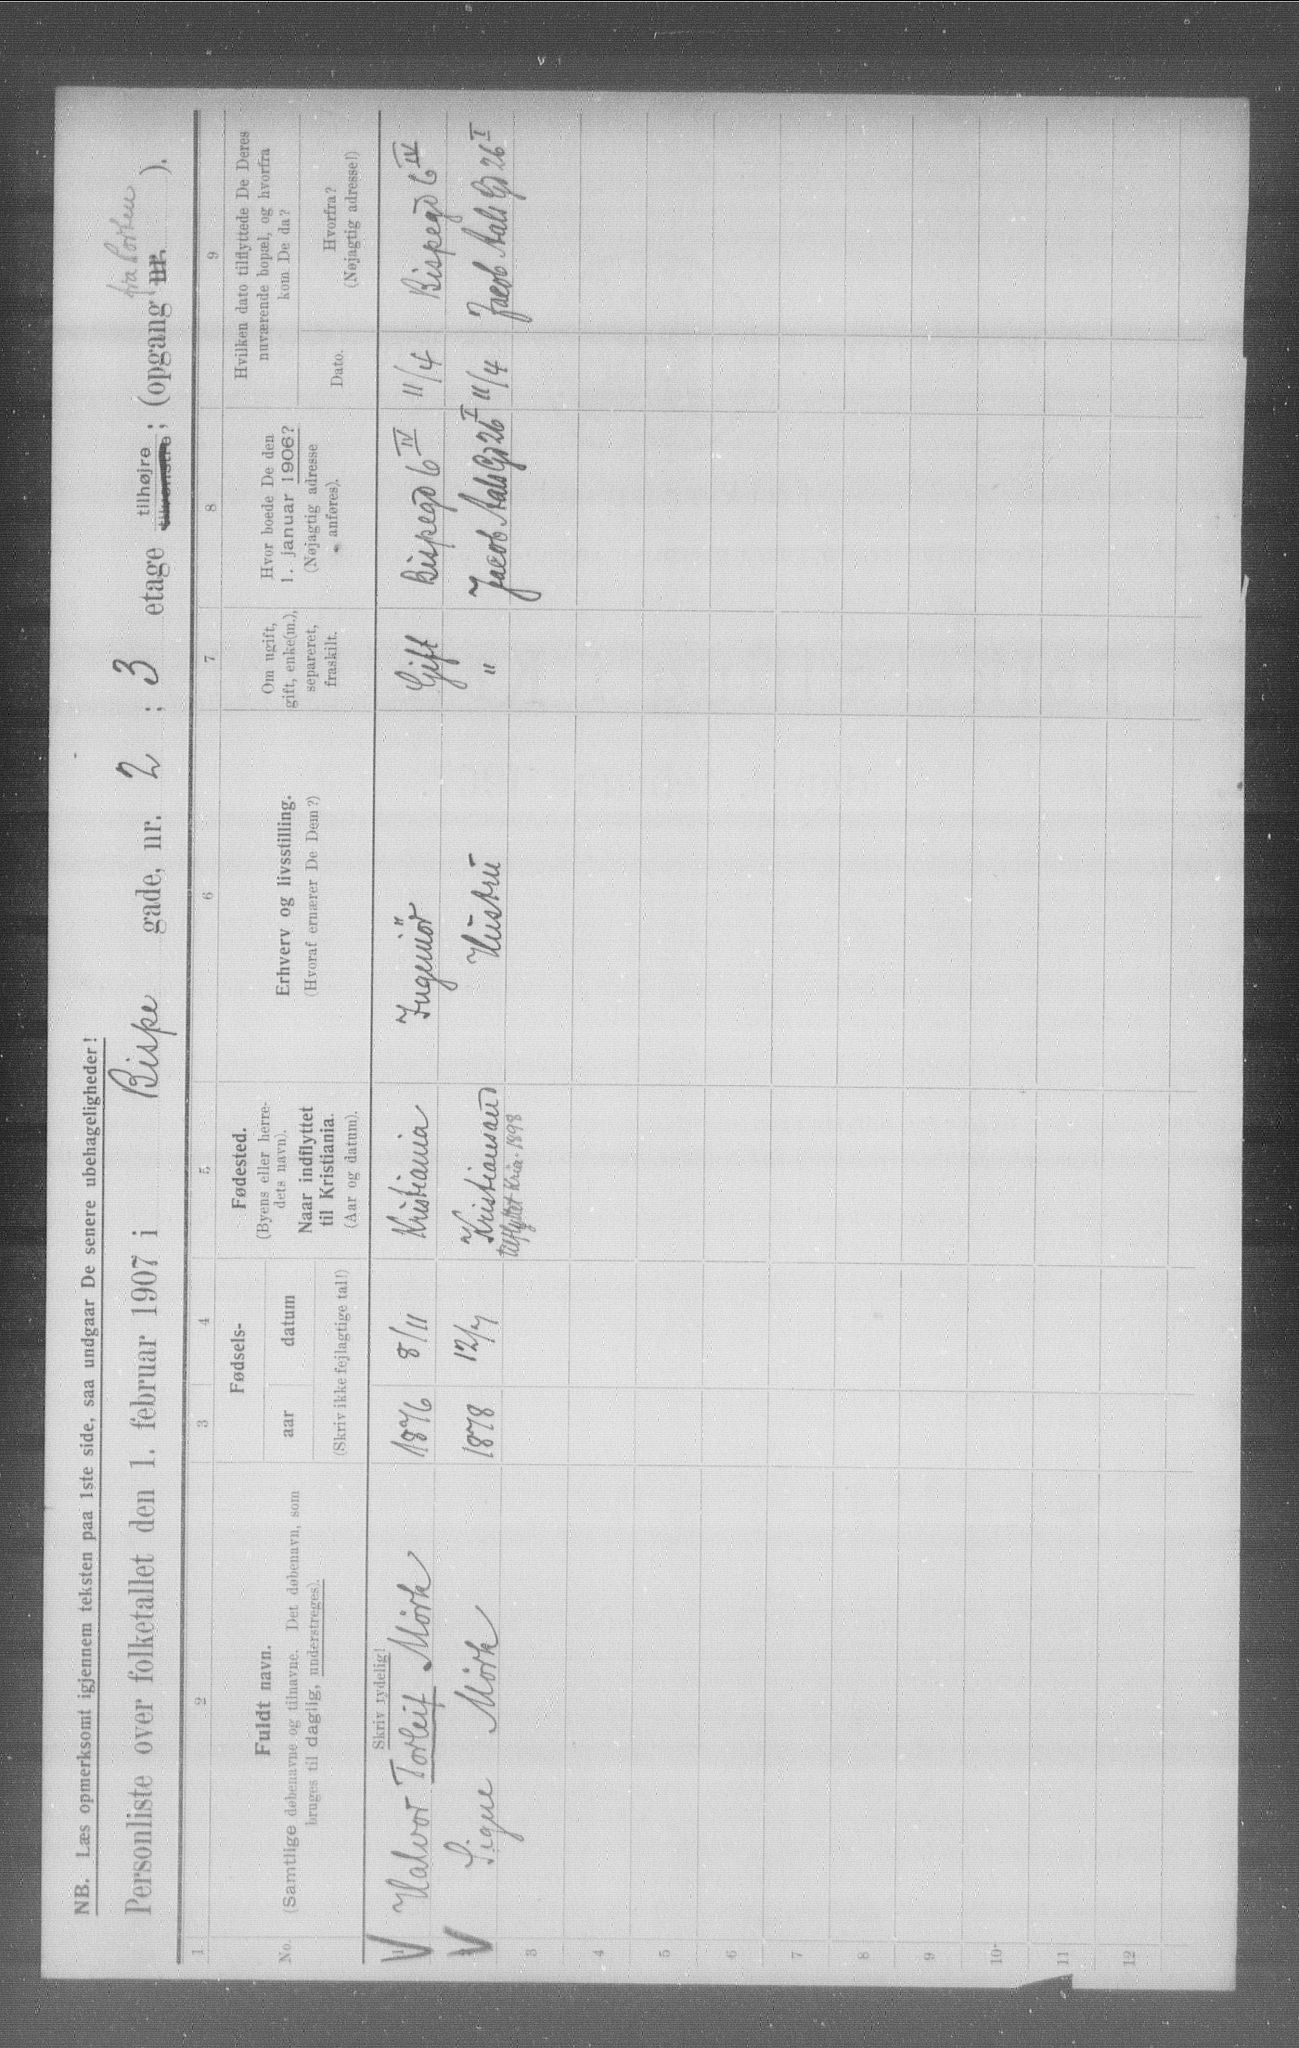 NB. Læs opmerksomt igjennem teksten paa 1ste side, saa undgaar De senere ubehageligheder!
fra Porten
Personliste over folketallet den 1. februar 1907 i Bispe gade, nr. 2 ; 3 etage tilhøjre tilvenstre ; (opgang nr. ).
1 2 3 4 5 6 7 8 9
No.
Fuldt navn.
(Samtlige døbenavne og tilnavne. Det døbenavn, som
bruges til daglig, understreges).
Fødsels-
aar datum
(Skriv ikke fejlagtige tal!)
Fødested.
(Byens eller herre-
dets navn).
Naar indflyttet
til Kristiania.
(Aar og datum).
Erhverv og livsstilling.
(Hvoraf ernærer De Dem?)
Om ugift,
gift, enke(m.),
separeret,
fraskilt.
Hvor boede De den
1. januar 1906?
(Nøjagtig adresse
anføres).
Hvilken dato tilflyttede De Deres
nuværende bopæl, og hvorfra
kom De da?
Dato.
Hvorfra?
(Nøjagtig adresse!)
Skriv tydelig!
V 1 Halvor Torleif Mörk 1876 8/11 Kristiania Ingeniör Gift Bispegd 6 IV 11/4 Bispegd 6 IV
V 2 Signe Mörk 1878 12/7 Kristiansand Hustru " Jacob Aals Gd 26 I 11/4 Jacob Aals Gd 26 I
tilflyttet Kria. 1898
3
4
5
6
7
8
9
10
11
12